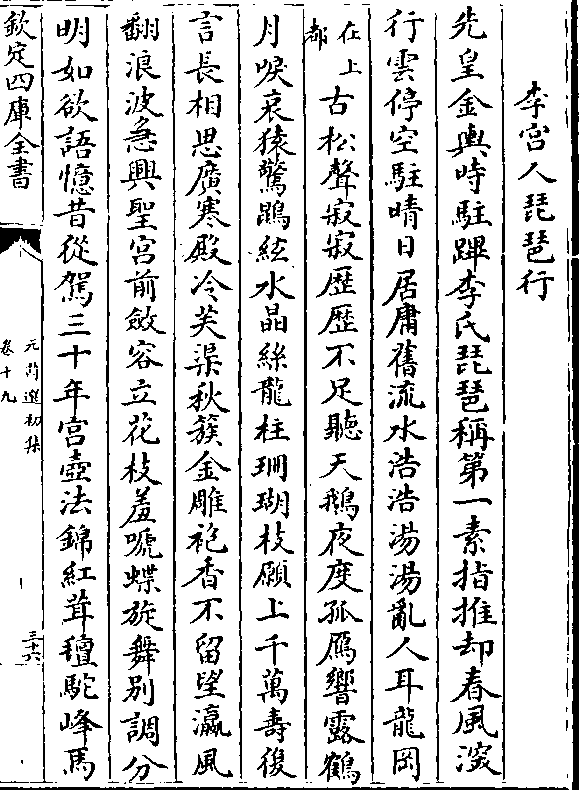 李宮人琵琶行
先皇金輿時駐蹕李氏琵琶稱第一素指推却春風深
行雲停空駐晴日居庸舊流水浩浩湯湯亂人耳龍岡
在上
都
古松聲寂寂歷歷不足聽天鵝夜度孤鴈響露鶴
月唳哀猿驚鵾絃水晶絲龍柱珊瑚枝願上千萬壽復
言長相思廣寒殿冷芙渠秋簇金雕袍香不留望瀛風
翻浪波急興聖宮前斂容立花枝羞啼蝶旋舞別調分
明如欲語憶昔從駕三十年宮壺法錦紅茸氊駝峰馬
欽定四庫全書
元詩選初集
卷十九
三十六